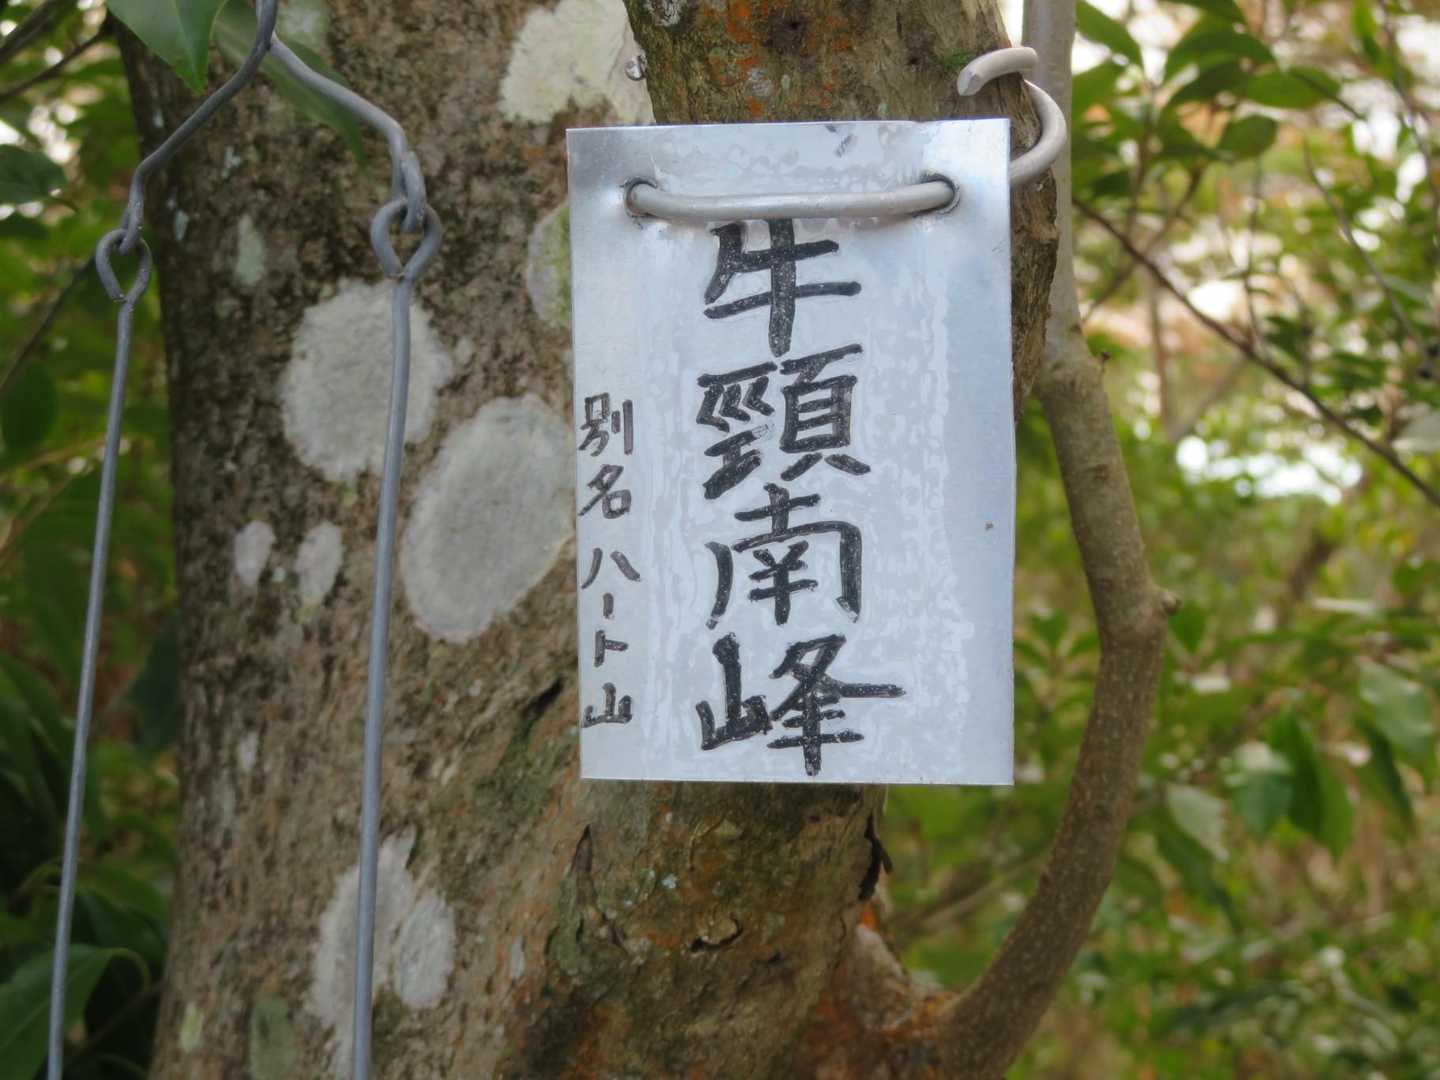 牛頸南峰
別名ハート山